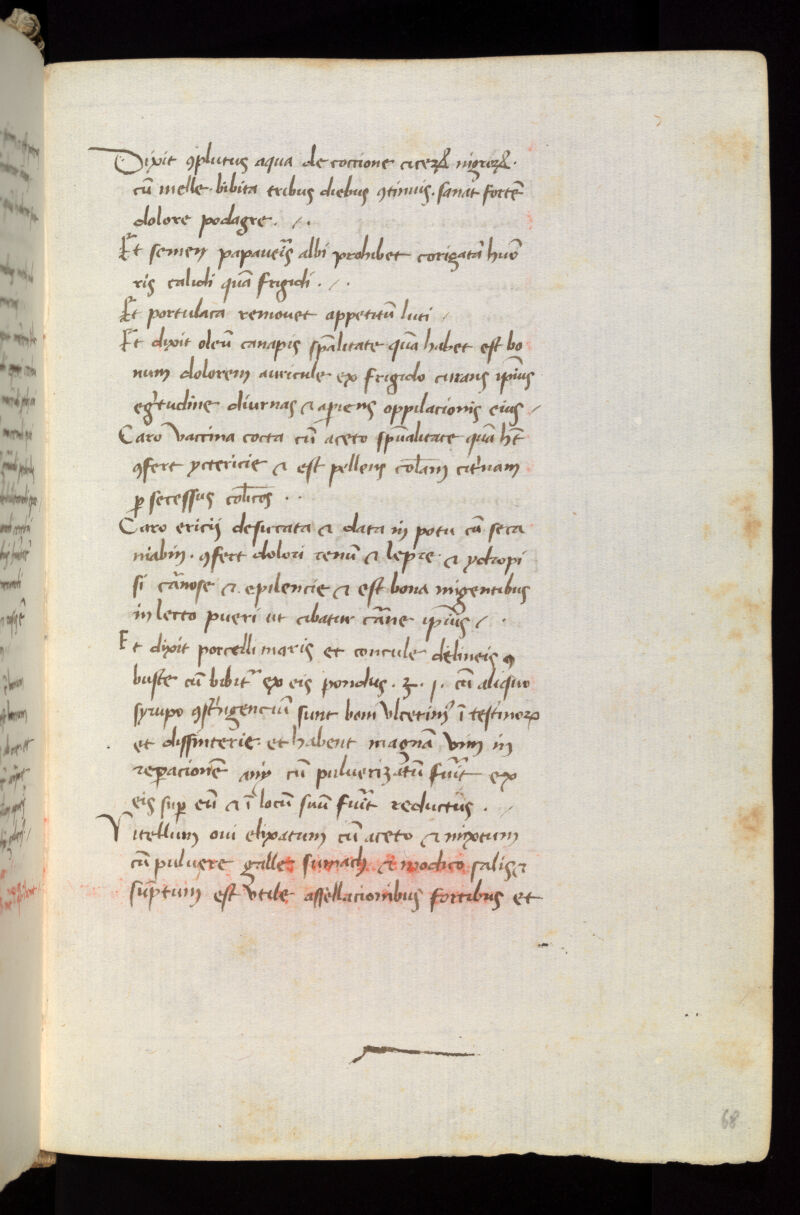 Dixit ꝯplutus aqua de coccione ciceꝝ nigroꝝ·
cū melle· bibita tribus diebus ꝯtinuis· sanat fortē
dolore podagre· ·/·
Et semen papaueris albi prohibet corigatā huō
ris calidi quā frigidi · /·
Et portulaca remouet appetitū luti /
Et dixit oleū canapis spālitate quā habet est bo
num dolorem auricule ex frigido curans ipsius
egritudine diurnas & aperiens oppilacionis eius /
Caro vaccina cocta cū aceto spūalitate quā hēt
ꝯfert yctericie & est pellens colam citrinam
ꝑ secessus colicos · ·
Caro ericij desiccata & data in potu cū seca
niabin· ꝯfert dolori renū & lepre & ydropi
si carnose & epilencie & est bona migentibus
in lecto pueri ut cibatur carne ipsius /·
Et dixit porcelli maris et concule delineis ꝯ
buste cū bibitr ex eis pondus · ʒ · j · cū aliquo
syrupo ꝯstrigenciū sunt boni vlceribus ī testinoꝝ
et dissinterie· et habent magnā vim in
reꝑacionē cū pulverizatū fuit ex
eis suꝑ eū & ī locū suū fuit reductus · /
Vitellum oui elixatum cū aceto & mixtum
cū pulvere galle sumach & modico salis &
sūptum est vtile assellacionibus fortibus et
68